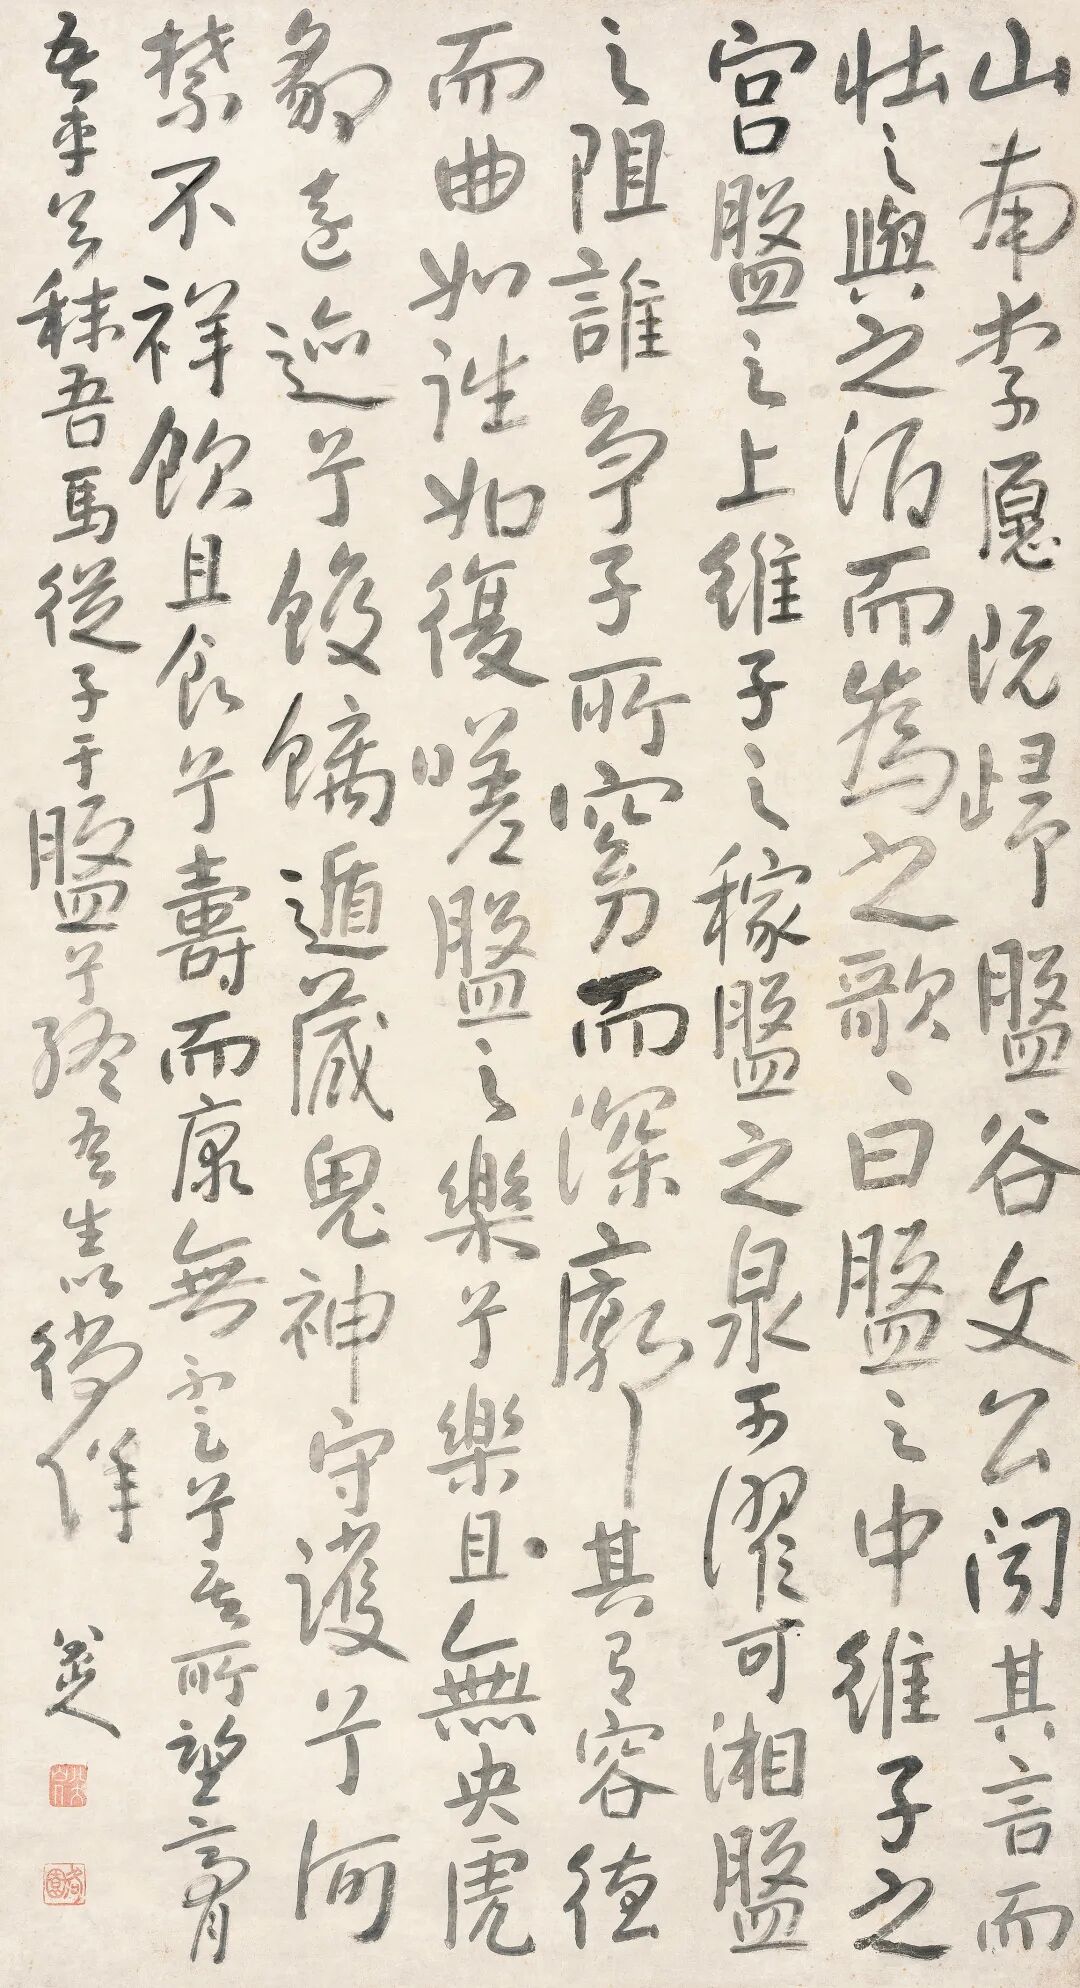 山南李愿既歸盤谷文公聞其言而
壮之與之酒而為之歌曰盤之中維子之
宮盤之上維子之稼盤之泉可濯可湘盤
之阻誰争子所窈而深廓其有容
而曲如往如復嗟盤之樂兮樂且無央虎
豹遠迹兮蛟螭遁藏鬼神守護兮呵
禁不祥飲且食兮壽而康無不足兮奚所望膏
吾車兮秣吾馬從子于盤兮終吾生以徜徉
八大山人